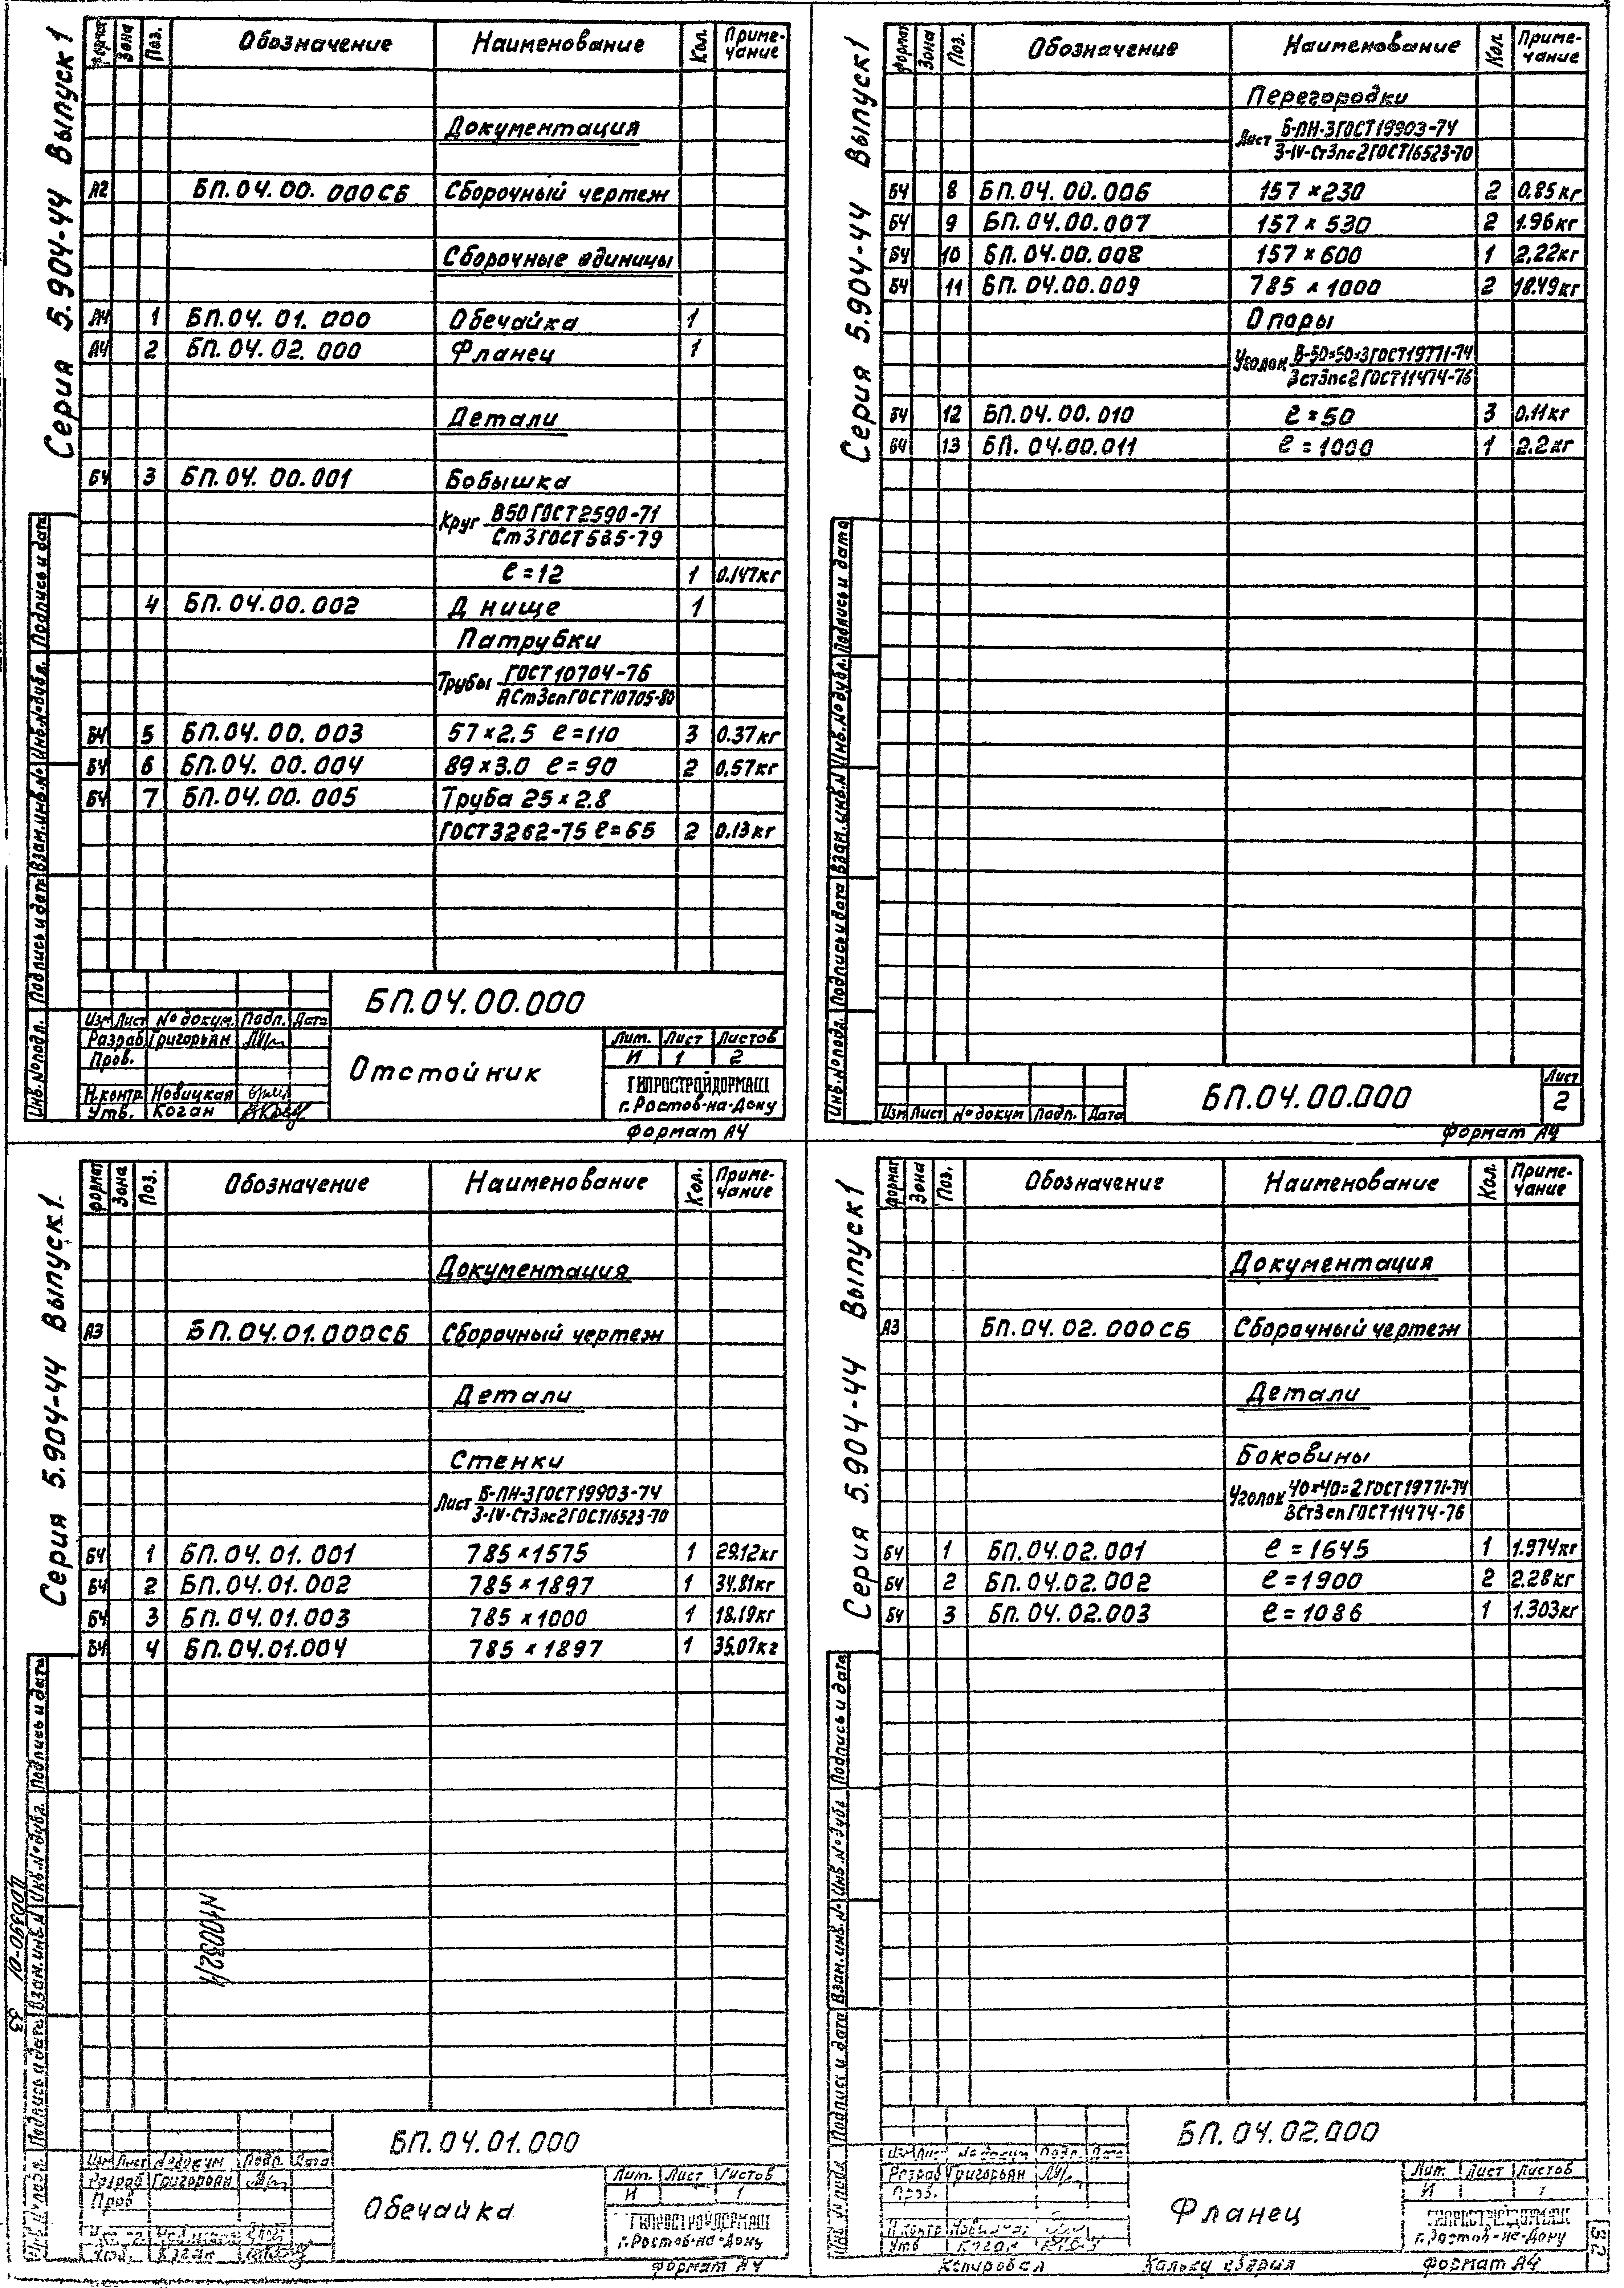 Серия 5.904-44 Выпуск 1
Формат Зона Поз. Обозначение Наименование Кол. Приме-чание
Документация
А2 БП.04.00.000СБ Сборочный чертеж
Сборочные единицы
А4 1 БП.04.01.000 Обечайка 1
А4 2 БП.04.02.000 Фланец 1
Детали
БЧ 3 БП.04.00.001 Бобышка
Круг В50 ГОСТ 2590-71
Ст3 ГОСТ 535-79
ℓ=12 1 0.147кг
4 БП.04.00.002 Днище 1
Патрубки
Трубы ГОСТ 10704-76
АСт3сп ГОСТ 10705-80
БЧ 5 БП.04.00.003 57×2.5 ℓ=110 3 0.37кг
БЧ 6 БП.04.00.004 89×3.0 ℓ=90 2 0,57кг
БЧ 7 БП.04.00.005 Труба 25×2.8
ГОСТ 3262-75 ℓ=65 2 0.13кг
Инв.№подл. Подпись и дата Взам.инв.№ Инв.№дубл. Подпись и дата
БП.04.00.000
Изм Лист № докум. Подп. Дата
Разраб Григорьян
Пров.
Н.контр. Новицкая
Утв. Коган
Отстойник
Лит. Лист Листов
И 1 2
ГИПРОСТРОЙДОРМАШ
г.Ростов-на-Дону
Формат А4
Серия 5.904-44 Выпуск 1
Формат Зона Поз. Обозначение Наименование Кол. Приме-чание
Перегородки
Лист Б-ПН-3 ГОСТ 19903-74
3-IV-Ст3пс2 ГОСТ 16523-70
БЧ 8 БП.04.00.006 157×230 2 0.85кг
БЧ 9 БП.04.00.007 157×530 2 1.96кг
БЧ 10 БП.04.00.008 157×600 1 2,22кг
БЧ 11 БП.04.00.009 785×1000 2 18.49кг
Опоры
Уголок В-50×50×3 ГОСТ 19771-74
3ст3пс2 ГОСТ 11474-76
БЧ 12 БП.04.00.010 ℓ=50 3 0,11кг
БЧ 13 БП.04.00.011 ℓ=1000 1 2.2кг
Инв.№подл. Подпись и дата Взам.инв.№ Инв.№дубл. Подпись и дата
Изм Лист № докум Подп. Дата
БП.04.00.000
Лист
2
Формат А4
Серия 5.904-44 Выпуск 1.
Формат Зона Поз. Обозначение Наименование Кол. Приме-чание
Документация
А3 БП.04.01.000СБ Сборочный чертеж
Детали
Стенки
Лист Б-ПН-3 ГОСТ 19903-74
3-IV-Ст3пс2 ГОСТ 16523-70
БЧ 1 БП.04.01.001 785×1575 1 29.12кг
БЧ 2 БП.04.01.002 785×1897 1 34.81кг
БЧ 3 БП.04.01.003 785×1000 1 18,19кг
БЧ 4 БП.04.01.004 785×1897 1 35,07кг
Подпись и дата Взам.инв.№ Инв.№дубл. Подпись и дата
33
БП.04.01.000
Изм Лист № докум Подп. Дата
Разраб Григорьян
Пров
Утв. Коган
Обечайка
Лит. Лист Листов
И 1
ГИПРОСТРОЙДОРМАШ
г.Ростов-на-Дону
Формат А4
Серия 5.904-44 Выпуск 1
Формат Зона Поз. Обозначение Наименование Кол. Приме-чание
Документация
А3 БП.04.02.000СБ Сборочный чертеж
Детали
Боковины
Уголок 40×40×2 ГОСТ 19771-74
ВСт3сп ГОСТ 11474-76
БЧ 1 БП.04.02.001 ℓ=1645 1 1.974кг
БЧ 2 БП.04.02.002 ℓ=1900 2 2.28кг
БЧ 3 БП.04.02.003 ℓ=1086 1 1.303кг
Подпись и дата Взам.инв.№ Инв.№дубл Подпись и дата
БП.04.02.000
Изм Лист № докум Подп. Дата
Разраб Григорьян
Пров.
Н.контр Новицкая
Утв Коган
Фланец
Лит. Лист Листов
И 1
ГИПРОСТРОЙДОРМАШ
г.Ростов-на-Дону
Копировал
Формат А4